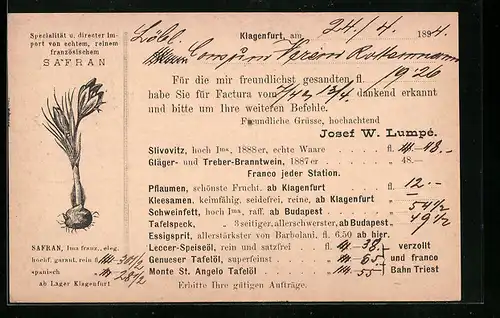 Specialität u. directer Im-
port von echtem, reinem
französischem
SAFRAN
SAFRAN, Ima franz., eleg.
hochf. garant. rein fl.
spanisch „
ab Lager Klagenfurt
Klagenfurt, am 24./4. 1894.
Löbl.
Für die mir freundlichst gesandten fl. 19·26
habe Sie für Factura vom 13/4. dankend erkannt
und bitte um Ihre weiteren Befehle.
Freundliche Grüsse, hochachtend
Josef W. Lumpé.
Slivovitz, hoch Ima, 1888er, echte Waare . . fl. 48.—
Gläger- und Treber-Branntwein, 1887er . „ 48.—
Franco jeder Station.
Pflaumen, schönste Frucht. ab Klagenfurt fl. 12.—
Kleesamen, keimfähig, seidefrei, reine, ab Klagenfurt „
Schweinfett, hoch Ima, raff. ab Budapest . „ 54½
Tafelspeck, „ 3seitiger, allerschwerster, ab Budapest „ 49½
Essigsprit, allerstärkster von Barbolani. fl. 6.50 ab hier.
Leccer-Speiseöl, rein und satzfrei . fl. 38.
Genueser Tafelöl, superfeinst . . „ 65
Monte St. Angelo Tafelöl . . . „ 55
verzollt
und franco
Bahn Triest
Erbitte Ihre gütigen Aufträge.